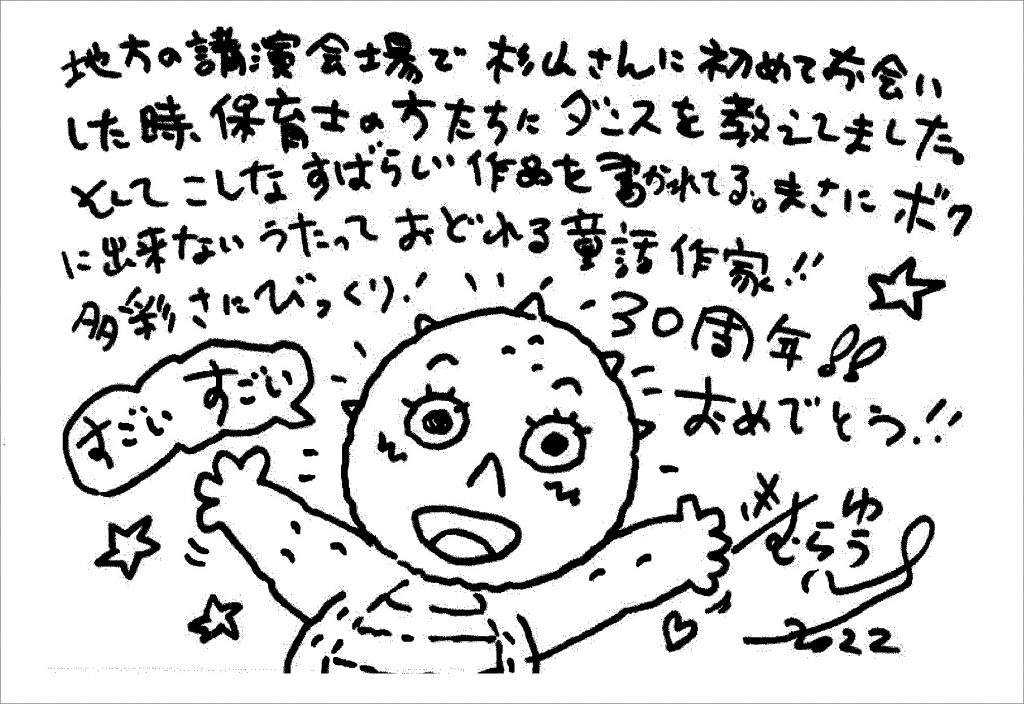 地方の講演会場で 杉山さんに 初めてお会い
した時、保育士の方たちに ダンスを 教えてました。
そして こしな すばらしい 作品を 書かれてる。まさに ボク
に出来ない うたって おどれる 童話作家!!
多彩さに びっくり!
30周年!!
おめでとう!!
すごい すごい
むらう
2022